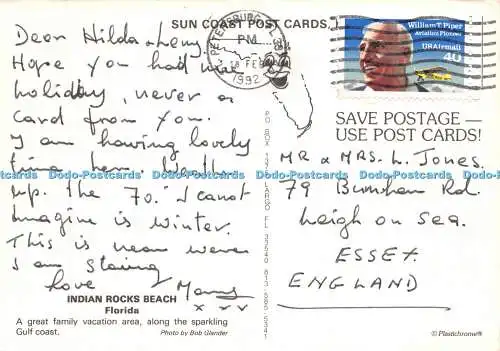 SUN COAST POST CARDS,
Dear Hilda & Leny.
Hope you had nice
holiday, never a
card from you.
I am having lovely
time here. Weather
up. the 70. I canot
Imagine is winter.
This is near were
I am staing
Love Many
x x x
INDIAN ROCKS BEACH
Florida
A great family vacation area, along the sparkling
Gulf coast.
Photo by Bob Glander
ST PETERSBURG, FL
PM
FEB
1992
William T. Piper
Aviation Pioneer
USAirmail
40
SAVE POSTAGE —
USE POST CARDS!
MR & MRS. L. JONES.
79 Rd.
Leigh on Sea.
ESSEX.
ENGLAND
© Plastichrome®
Dodo-Postcards Dodo-Postcards Dodo-Postcards Dodo-Postcards Dodo-Postcards
Dodo-Postcards Dodo-Postcards Dodo-Postcards Dodo-Postcards Dodo-Postcards